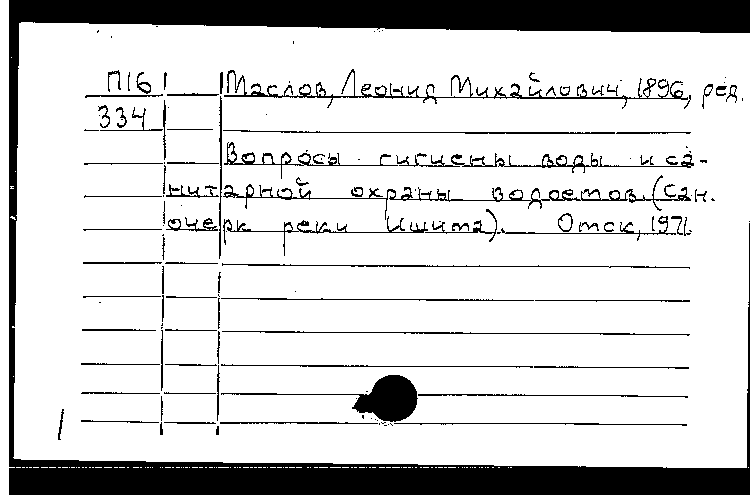 П16 Маслов, Леонид Михайлович, 1896, ред.
334
Вопросы гигиены воды и са-
нитарной охраны водоемов. (Сан.
очерк реки Ишима). Омск, 1971.